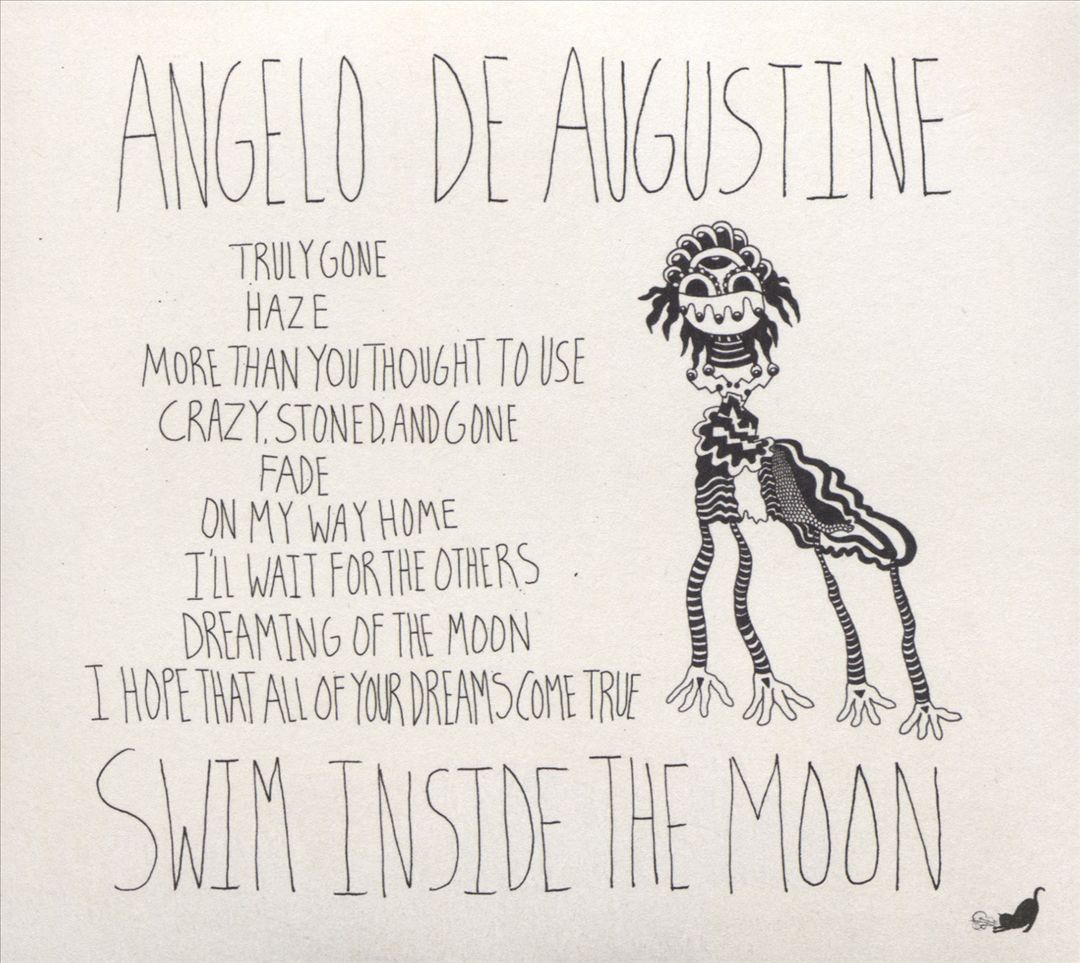 ANGELO DE AUGUSTINE
TRULY GONE
HAZE
MORE THAN YOU THOUGHT TO USE
CRAZY, STONED, AND GONE
FADE
ON MY WAY HOME
I'LL WAIT FOR THE OTHERS
DREAMING OF THE MOON
I HOPE THAT ALL OF YOUR DREAMS COME TRUE
SWIM INSIDE THE MOON